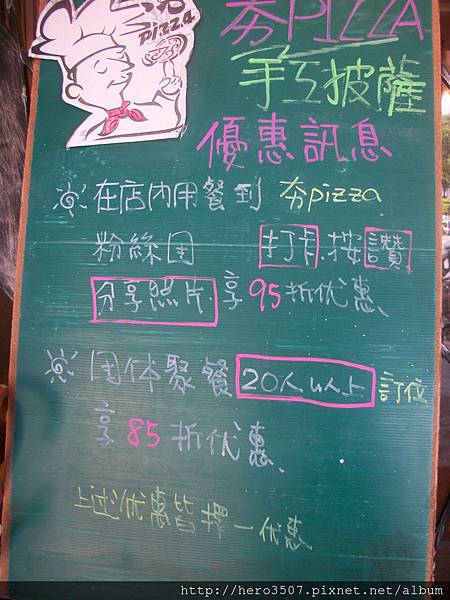 pizza
夯PIZZA
手工披薩
優惠訊息
在店內用餐到 夯pizza
粉絲团 打卡.按讚
分享照片.享95折优惠
团体聚餐20人以上訂位
享85折优惠
上述优惠皆擇一优惠
http://hero3507.pixnet.net/album